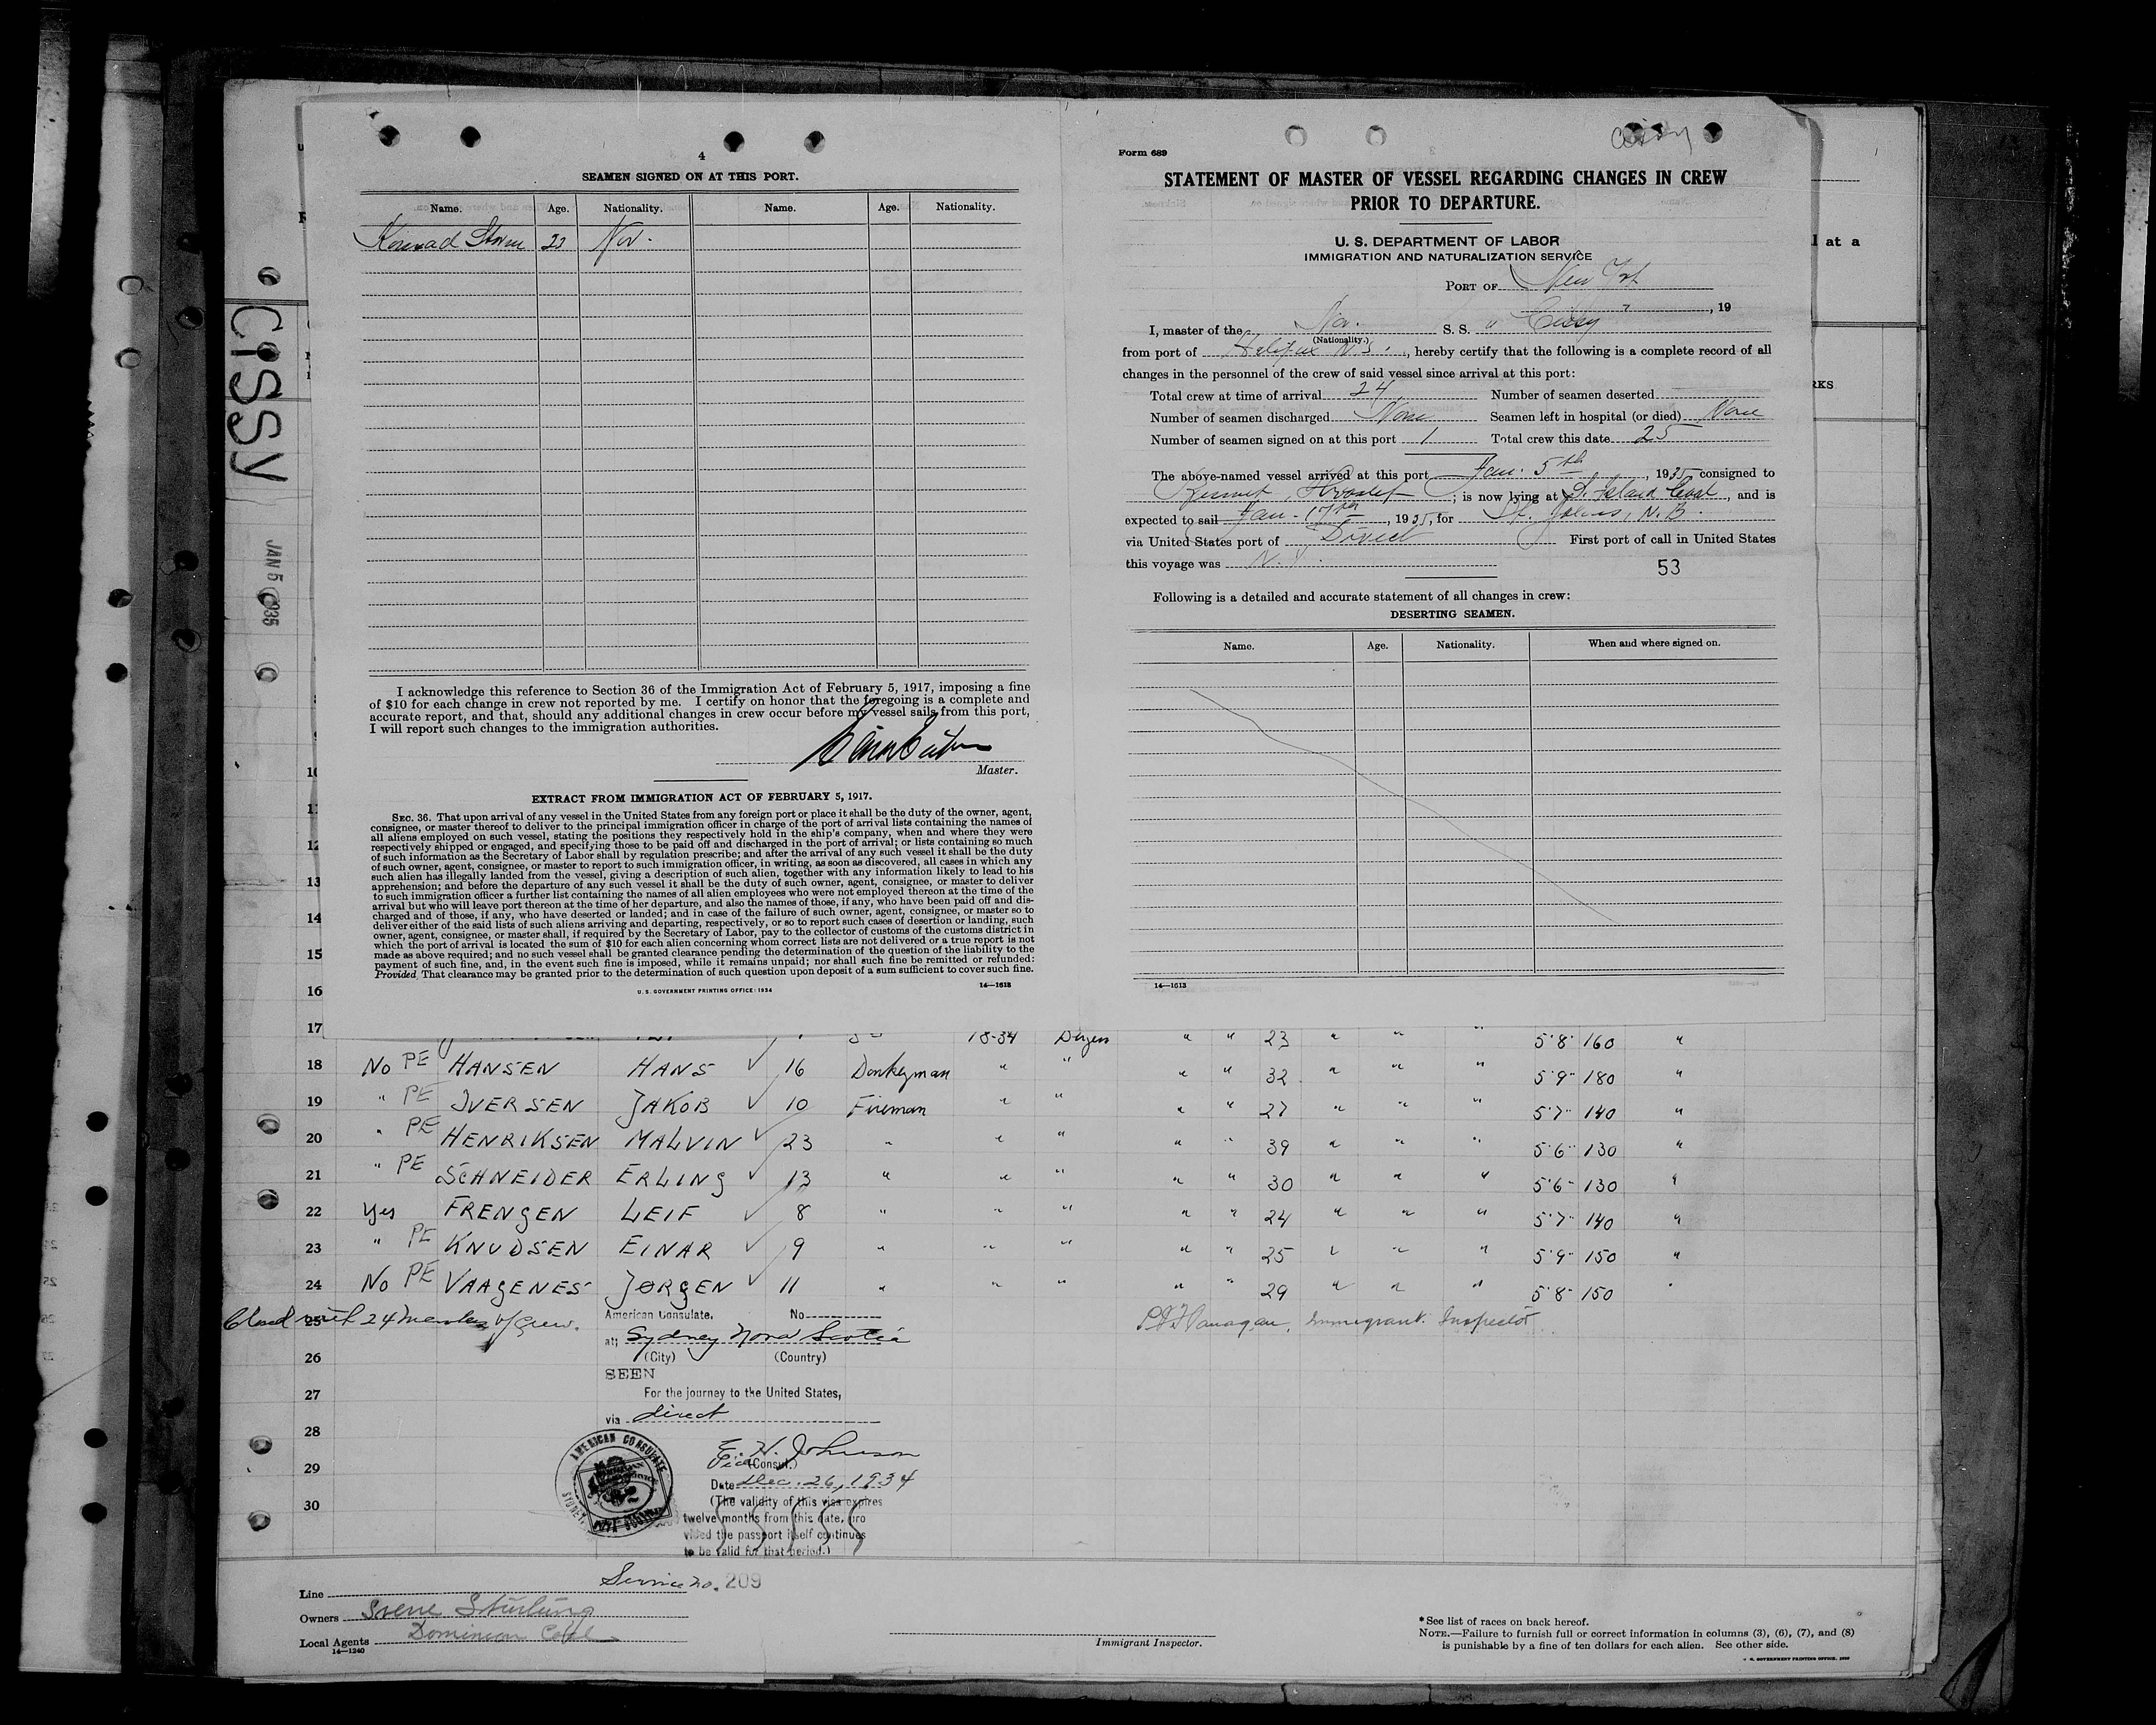 CISSY
JAN 5 1935
4
SEAMEN SIGNED ON AT THIS PORT.
Name. Age. Nationality. Name. Age. Nationality.
Konrad Storm 23 Nor.
I acknowledge this reference to Section 36 of the Immigration Act of February 5, 1917, imposing a fine
of $10 for each change in crew not reported by me. I certify on honor that the foregoing is a complete and
accurate report, and that, should any additional changes in crew occur before my vessel sails from this port,
I will report such changes to the immigration authorities.
Master.
EXTRACT FROM IMMIGRATION ACT OF FEBRUARY 5, 1917.
SEC. 36. That upon arrival of any vessel in the United States from any foreign port or place it shall be the duty of the owner, agent,
consignee, or master thereof to deliver to the principal immigration officer in charge of the port of arrival lists containing the names of
all aliens employed on such vessel, stating the positions they respectively hold in the ship's company, when and where they were
respectively shipped or engaged, and specifying those to be paid off and discharged in the port of arrival; or lists containing so much
of such information as the Secretary of Labor shall by regulation prescribe; and after the arrival of any such vessel it shall be the duty
of such owner, agent, consignee, or master to report to such immigration officer, in writing, as soon as discovered, all cases in which any
such alien has illegally landed from the vessel, giving a description of such alien, together with any information likely to lead to his
apprehension; and before the departure of any such vessel it shall be the duty of such owner, agent, consignee, or master to deliver
to such immigration officer a further list containing the names of all alien employees who were not employed thereon at the time of the
arrival but who will leave port thereon at the time of her departure, and also the names of those, if any, who have been paid off and dis-
charged and of those, if any, who have deserted or landed; and in case of the failure of such owner, agent, consignee, or master so to
deliver either of the said lists of such aliens arriving and departing, respectively, or so to report such cases of desertion or landing, such
owner, agent, consignee, or master shall, if required by the Secretary of Labor, pay to the collector of customs of the customs district in
which the port of arrival is located the sum of $10 for each alien concerning whom correct lists are not delivered or a true report is not
made as above required; and no such vessel shall be granted clearance pending the determination of the question of the liability to the
payment of such fine, and, in the event such fine is imposed, while it remains unpaid; nor shall such fine be remitted or refunded:
Provided, That clearance may be granted prior to the determination of such question upon deposit of a sum sufficient to cover such fine.
U. S. GOVERNMENT PRINTING OFFICE: 1934 14—1613
Form 689 Cissy
STATEMENT OF MASTER OF VESSEL REGARDING CHANGES IN CREW
PRIOR TO DEPARTURE.
U. S. DEPARTMENT OF LABOR
IMMIGRATION AND NATURALIZATION SERVICE
PORT OF New York
, 19
I, master of the Nor. S. S. " Cissy "
(Nationality.)
from port of Halifax N.S. , hereby certify that the following is a complete record of all
changes in the personnel of the crew of said vessel since arrival at this port:
Total crew at time of arrival 24 Number of seamen deserted
Number of seamen discharged None Seamen left in hospital (or died) None
Number of seamen signed on at this port 1 Total crew this date 25
The above-named vessel arrived at this port Jan. 5th, 1935 consigned to
; is now lying at S. Island Coal, and is
expected to sail Jan. 17th, 1935, for St. Johns, N.B.
via United States port of Direct First port of call in United States
this voyage was N.Y.
53
Following is a detailed and accurate statement of all changes in crew:
DESERTING SEAMEN.
Name. Age. Nationality. When and where signed on.
14—1613
l at a
RKS
10
11
12
13
14
15
16
17 18-34 Bergen " " 23 " " " 5'8" 160 "
18 No PE HANSEN HANS ✓ 16 Donkeyman " " " " 32 " " " 5'9" 180 "
19 " PE IVERSEN JAKOB ✓ 10 Fireman " " " " 27 " " " 5'7" 140 "
20 " PE HENRIKSEN MALVIN ✓ 23 " " " " " 39 " " " 5'6" 130 "
21 " PE SCHNEIDER ERLING ✓ 13 " " " " " 30 " " " 5'6" 130 "
22 Yes FRENGEN LEIF ✓ 8 " " " " " 24 " " " 5'7" 140 "
23 " PE KNUDSEN EINAR ✓ 9 " " " " " 25 " " " 5'9" 150 "
24 No PE VAAGENES JØRGEN ✓ 11 " " " " " 29 " " " 5'8" 150 "
25 Closed with 24 members of crew. American Consulate. No. P J Flanagan, Immigrant Inspector
at; Sydney Nova Scotia
26 (City) (Country)
SEEN
27 For the journey to the United States,
via direct
28 AMERICAN CONSULATE
E. H. Johnson
29 Vice (Consul.)
Date Dec. 26, 1934
30 (The validity of this visa expires
twelve months from this date, pro
vided the passport itself continues
to be valid for that period.)
Service no. 209
Line
Owners Stürlung
Local Agents Dominion Coal
14—1240
Immigrant Inspector.
*See list of races on back hereof.
NOTE.—Failure to furnish full or correct information in columns (3), (6), (7), and (8)
is punishable by a fine of ten dollars for each alien. See other side.